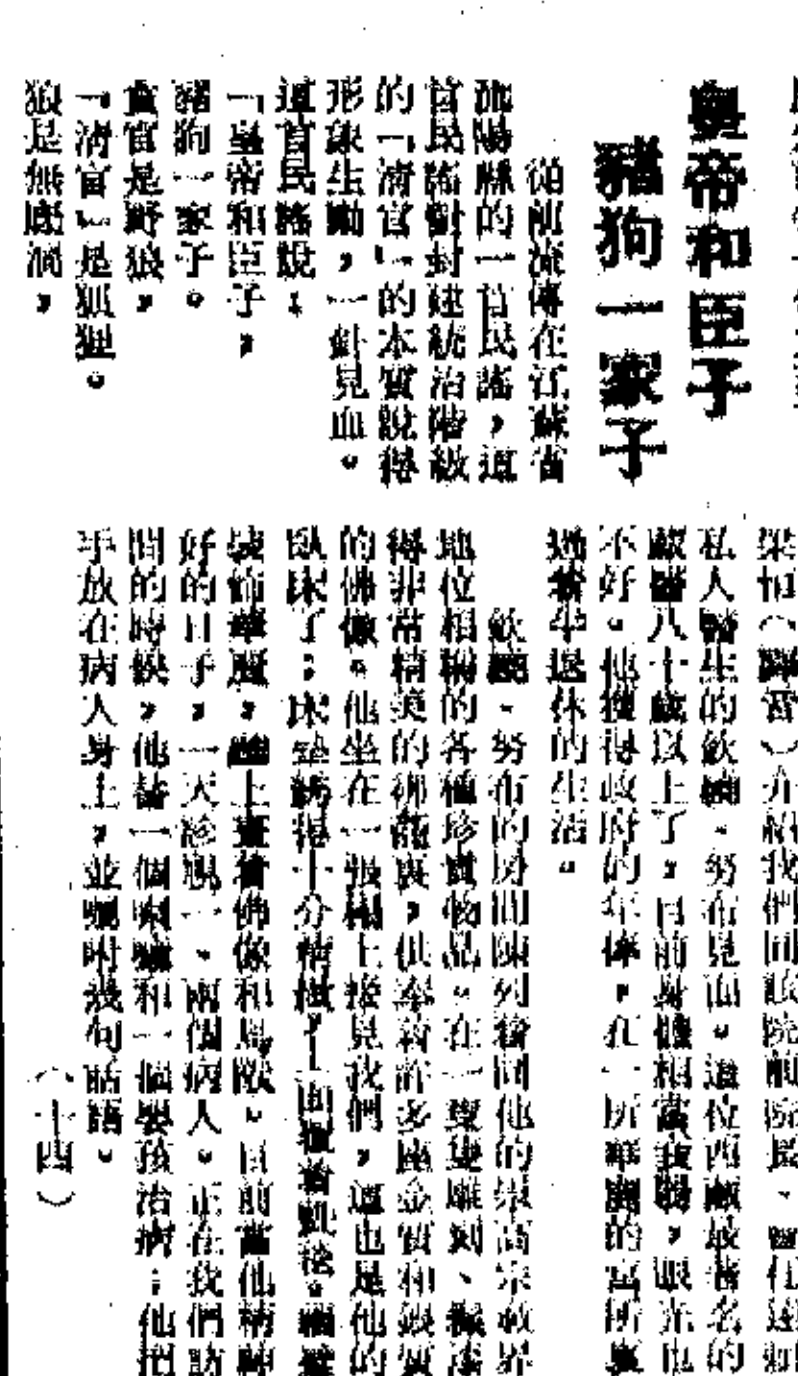 皇帝和臣子
豬狗一家子
從前流傳在江蘇省
沭陽縣的一首民謠,這
首民謠對封建統治階級
的「清官」的本質說得
形象生動,一針見血。
這首民謠說:
「皇帝和臣子,
豬狗一家子。
貪官是野狼,
『清官』是狐狸。
狼是無饜滿,
介紹我們同該院前院長、曾任達
私人醫生的欽 、努布見面。這位西藏最著名的
藏醫八十歲以上了,目前身體相當衰弱,眼光也
不好。他獲得政府的年俸,在一所華麗的寓所裏
過着半退休的生活。
欽 、努布的房間陳列着同他的崇高宗敎界
地位相稱的各種珍貴物品。在一 雕刻、 漆
得非常精美的神龕裏,供奉着許多座金質和銀質
的佛像。他坐在一張榻上接見我們,這也是他的
臥床了;床墊 得十分精 , 。牆壁
裝飾華麗, 上畫着佛像和鳥獸。目前當他精神
好的日子,一天診視一、兩個病人。正在我們訪
問的時候,他替一個喇嘛和一個嬰孩治病;他把
手放在病人身上,並囑咐幾句話語。
(十四)